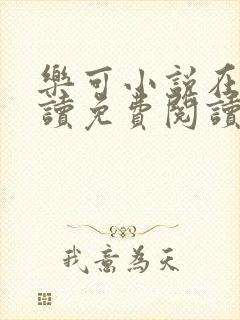 樂可小說在
讀免費閱讀
我意為天